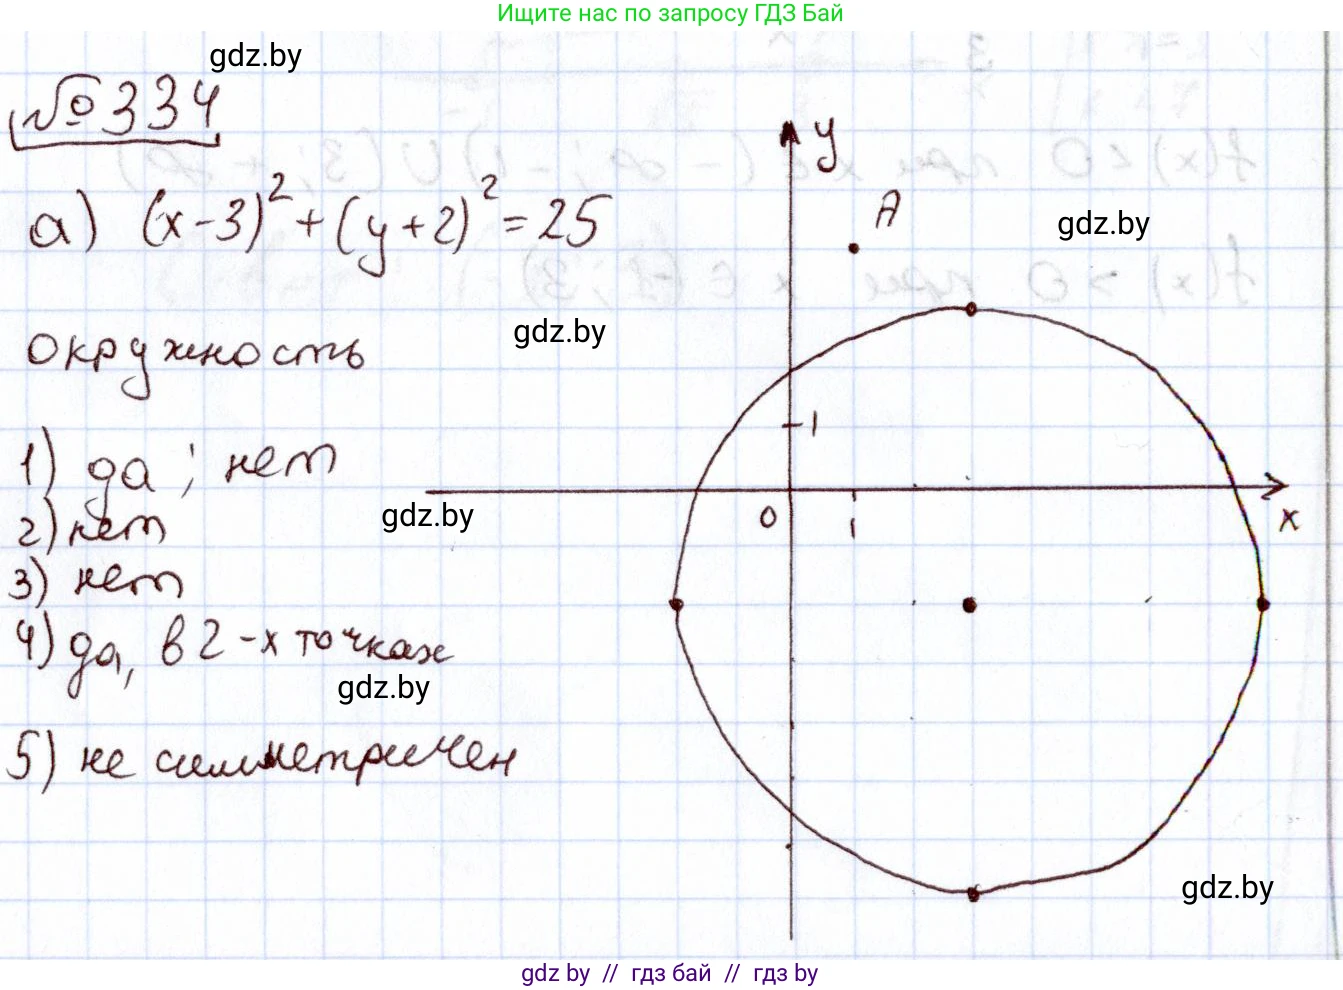 Ищите нас по запросу ГДЗ Бай
gdz.by
№334
а) (x-3)²+(y+2)²=25
gdz.by
окружность
1) да; нет
gdz.by
2) нет
3) нет
4) да, в 2-х точках
gdz.by
5) не симметричен
y
A
gdz.by
1
0
1
x
gdz.by
gdz by // гдз бай // гдз by